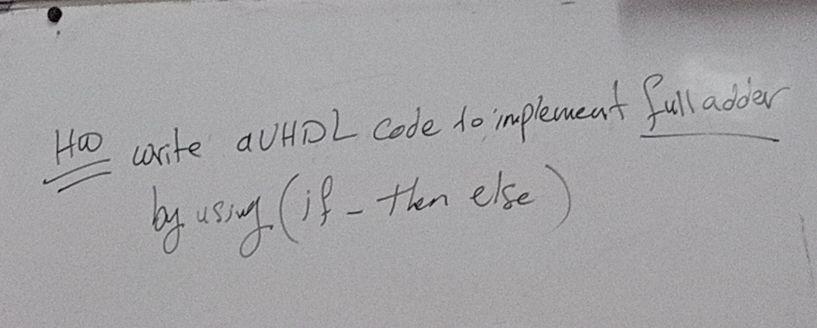 HW write a VHDL code to implement full adder
by using (if - then else)